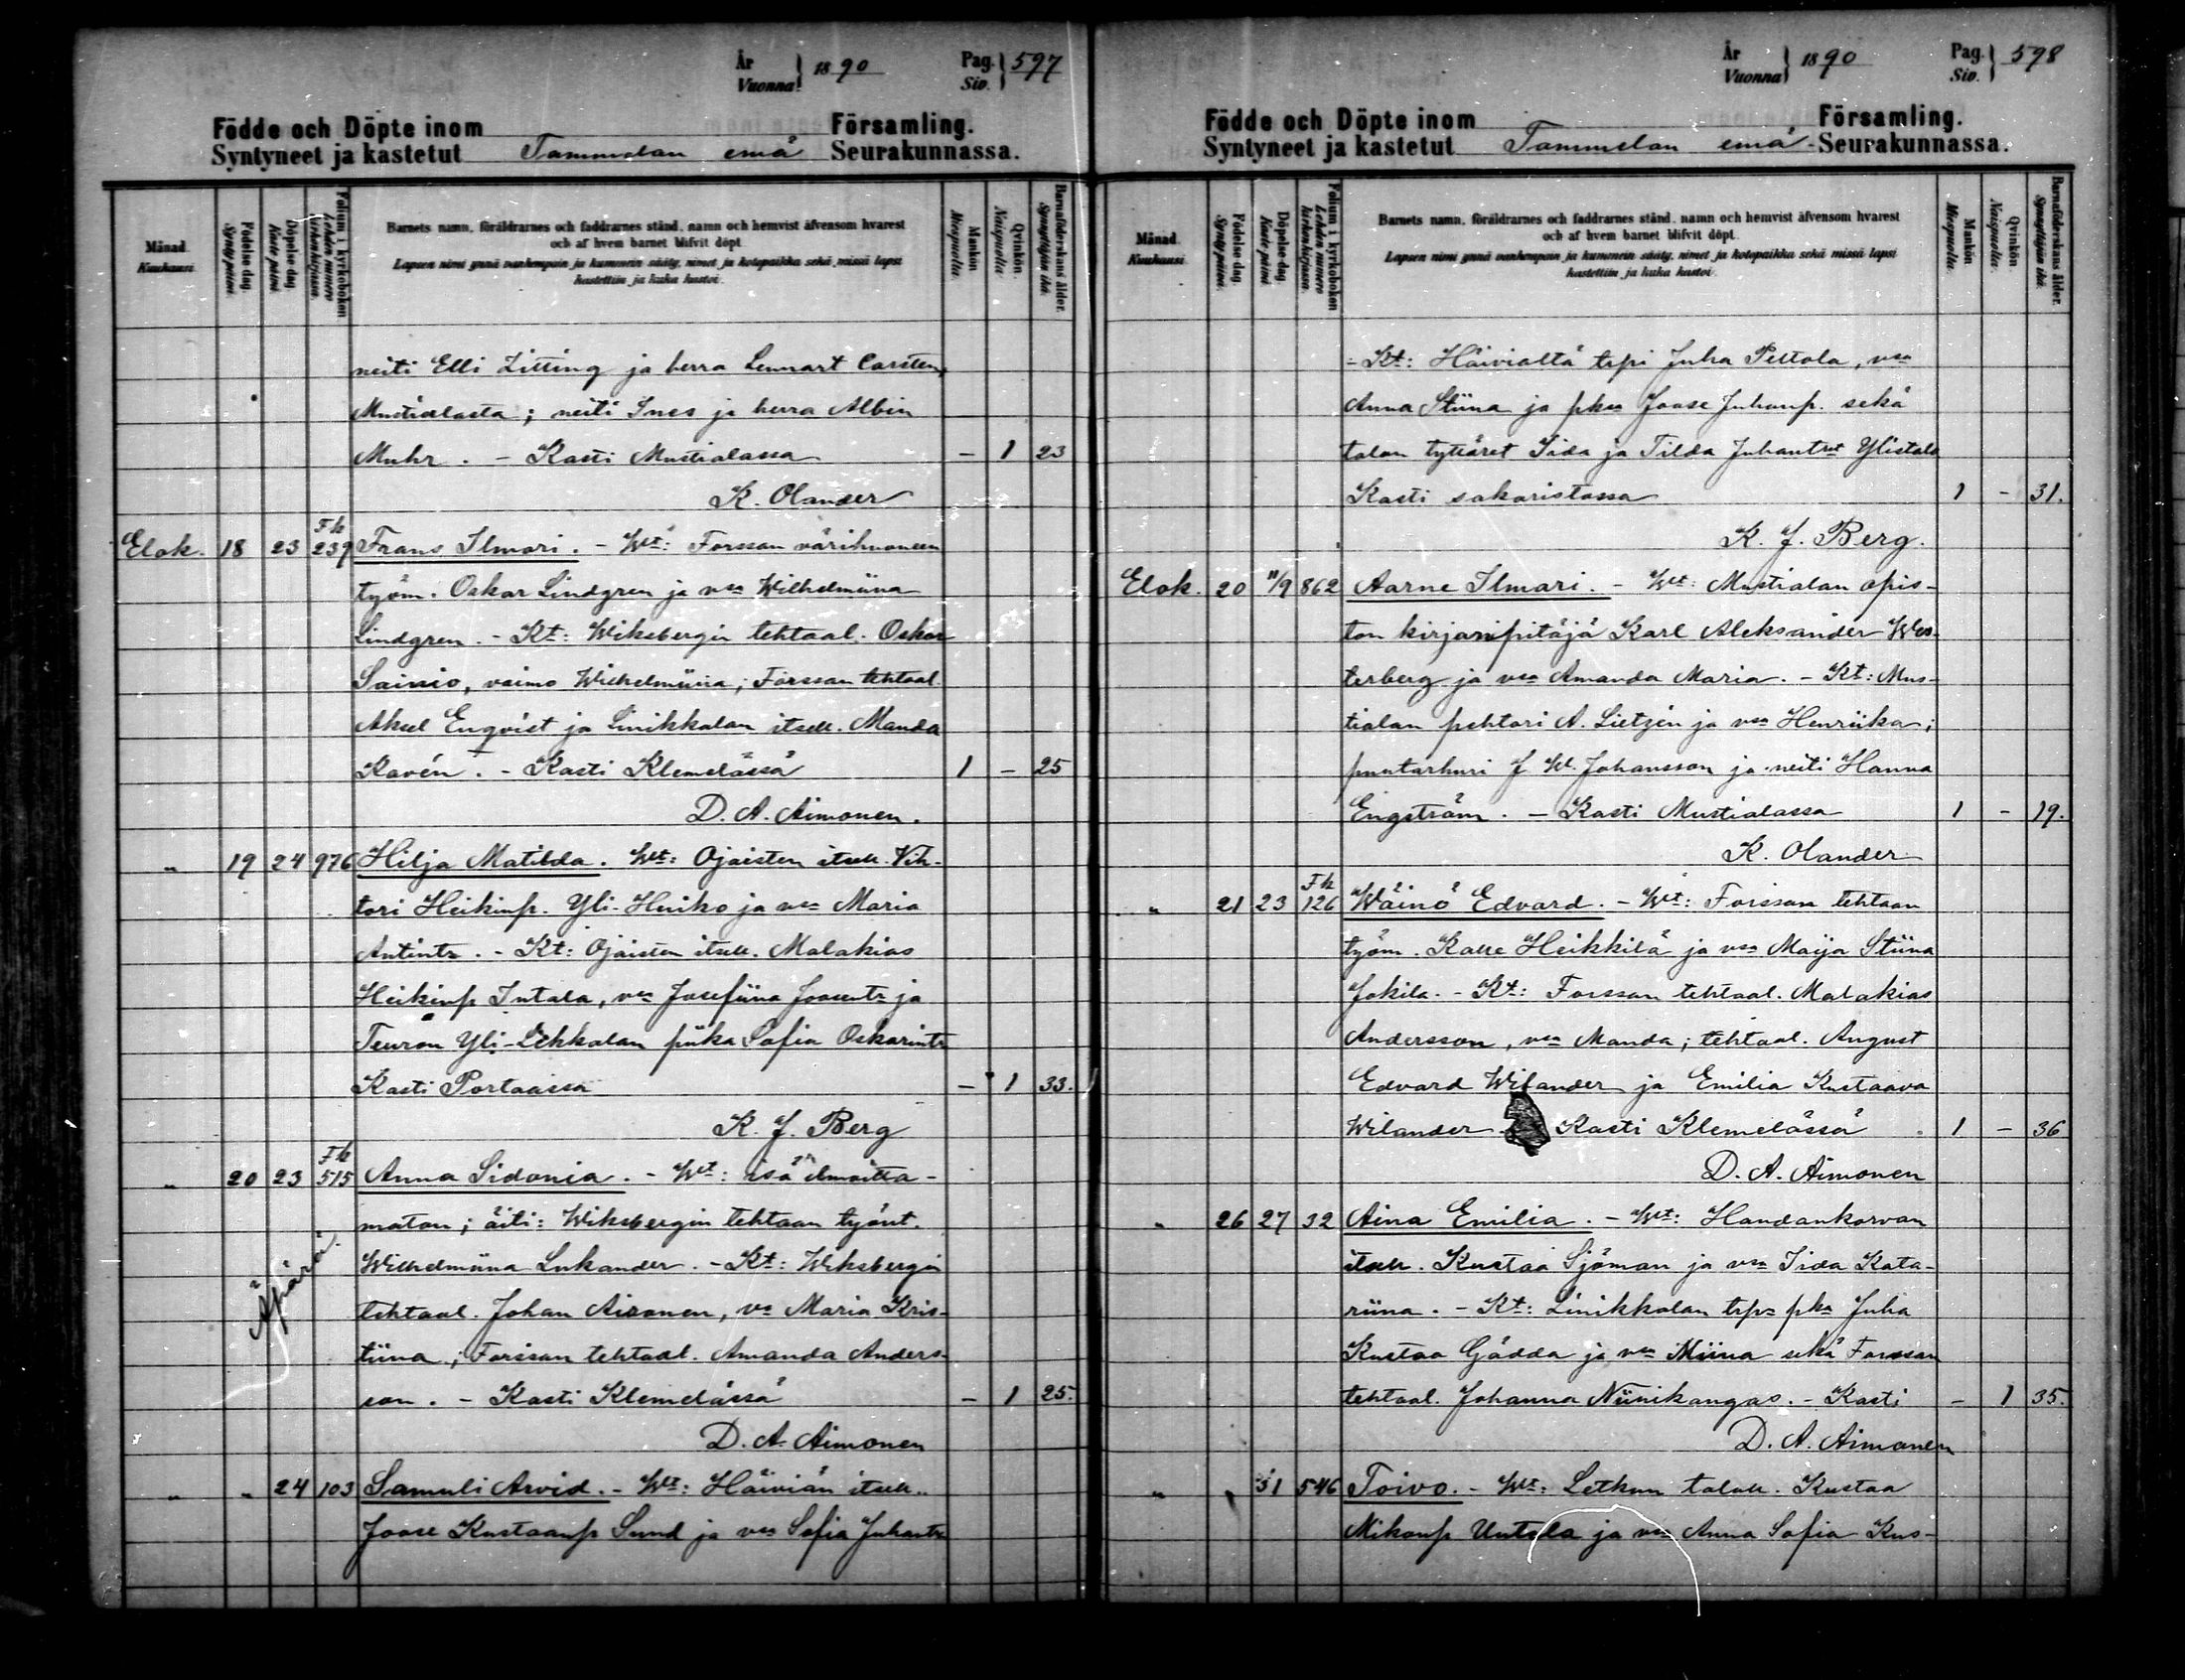 År
Vuonna } 1890 Pag. Siv. } 597
Födde och Döpte inom Församling.
Syntyneet ja kastetut Tammelan emä Seurakunnassa.
Månad. Kuukausi.
Födelse dag. Synty päivä.
Döpelse dag. Kaste päivä.
Folium i kyrkoboken Lehden numero kirkonkirjassa.
Barnets namn, föräldrarnes och faddrarnes stånd, namn och hemvist äfvensom hvarest
och af hvem barnet blifvit döpt.
Lapsen nimi ynnä vanhempain ja kummein sääty, nimet ja kotopaikka sekä missä lapsi
kastettiin ja kuka kastoi.
Mankön Miespuolta.
Qvinkön Naispuolta.
Barnaföderskans ålder. Synnyttäjän ikä.
neiti Elli Zitting ja herra Lennart Carsten,
Mustialasta; neiti Ines ja herra Albin
Muhr. - Kasti Mustialassa - 1 23
K. Olander
Elok. 18 23 Fk 239 Frans Ilmari. - Wt: Forssan värihuoneen
työm. Oskar Lindgren ja vmo Wilhelmiina
Lindgren. - Kt: Wiksbergin tehtaal. Oskar
Sainio, vaimo Wilhelmiina; Forssan tehtaal.
Aksel Enqvist ja Linikkalan itsell. Manda
Kavén. - Kasti Klemelässä 1 - 25
D. A. Aimonen.
" 19 24 976 Hilja Matilda. Wt: Ojaisten itsell. Vih-
tori Heikinp. Yli-Heiko ja vmo Maria
Antintr. - Kt: Ojaisten itsell. Malakias
Heikinp Intala, vmo Josefiina Joosentr ja
Teuron Yli-Lekkalan piika Sofia Oskarintr
Kasti Portaassa - 1 33.
K. J. Berg
" 20 23 Fk 515 Anna Sidonia. - Wt: isä ilmoitta-
maton; äiti: Wiksbergin tehtaan työnt.
Wilhelmiina Lukander. - Kt: Wiksbergin
Äpärä.
tehtaal. Johan Airanen, vo Maria Kris-
tiina; Forssan tehtaal. Amanda Anders-
son. - Kasti Klemelässä - 1 25.
D. A. Aimonen
" " 24 103 Samuli Arvid. - Wt: Häiviän itsell.
Joose Kustaanp Sund ja vmo Sofia Juhantr
År
Vuonna } 1890 Pag. Siv. } 598
Födde och Döpte inom Församling.
Syntyneet ja kastetut Tammelan emä- Seurakunnassa.
Månad. Kuukausi.
Födelse dag. Synty päivä.
Döpelse dag. Kaste päivä.
Folium i kyrkoboken Lehden numero kirkonkirjassa.
Barnets namn, föräldrarnes och faddrarnes stånd, namn och hemvist äfvensom hvarest
och af hvem barnet blifvit döpt.
Lapsen nimi ynnä vanhempain ja kummein sääty, nimet ja kotopaikka sekä missä lapsi
kastettiin ja kuka kastoi.
Mankön Miespuolta.
Qvinkön Naispuolta.
Barnaföderskans ålder. Synnyttäjän ikä.
- Kt: Häivialtä trpi Juha Peltola, vmo
Anna Stiina ja pka Joose Juhanp. sekä
talon tyttäret Iida ja Tilda Juhantrt Ylistalo
Kasti sakaristossa 1 - 31.
K. J. Berg.
Elok. 20 11/9 862 Aarne Ilmari. - Wt: Mustialan opis-
ton kirjanpitäjä Karl Aleksander Wes-
terberg ja vmo Amanda Maria. - Kt: Mus-
tialan pehtori A. Lietzén ja vmo Henriika;
puutarhuri J. W. Johansson ja neiti Hanna
Engström. - Kasti Mustialassa 1 - 19.
K. Olander
" 21 23 Fk 126 Wäinö Edvard. - Wt: Forssan tehtaan
työm. Kalle Heikkilä ja vmo Maija Stiina
Jokila. - Kt: Forssan tehtaal. Malakias
Andersson, vmo Manda; tehtaal. August
Edvard Wilander ja Emilia Kustaava
Wilander Kasti Klemelässä 1 - 36
D. A. Aimonen
" 26 27 32 Aina Emilia. - Wt: Haudankorvan
itsell. Kustaa Sjöman ja vmo Iida Kata-
riina. - Kt: Linikkalan trpn pka Juha
Kustaa Gädda ja vmo Miina sekä Forssan
tehtaal. Johanna Niinikangas. - Kasti - 1 35.
D. A. Aimonen
" " 31 546 Toivo. - Wt: Letkun talall. Kustaa
Mikonp Uutela ja vmo Anna Sofia Kus-